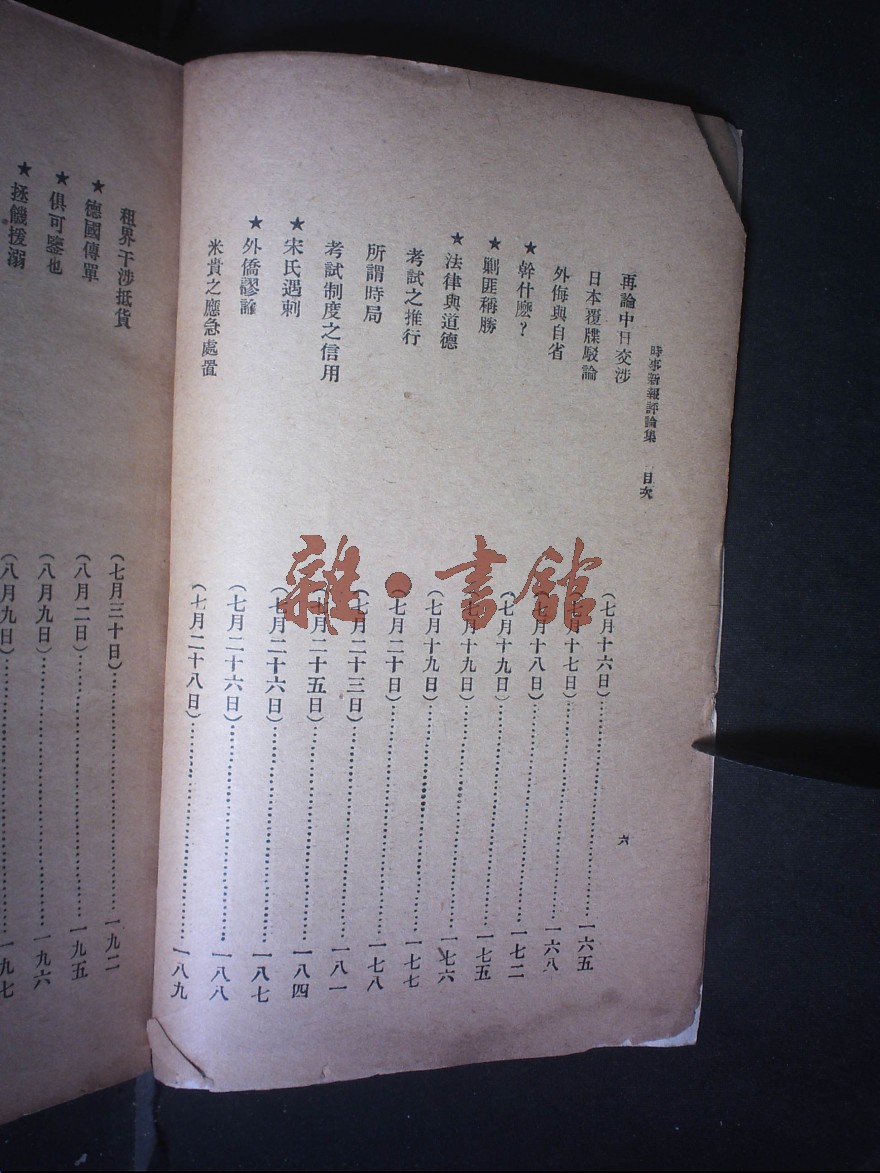 時事新報評論集 目次 六
再論中日交涉(七月十六日)……………………一六五
日本覆牒駁論(七月十七日)……………………一六八
外侮與自省(七月十八日)……………………一七二
★幹什麽?(七月十九日)……………………一七五
★剿匪稱勝(七月十九日)……………………一七六
★法律與道德(七月十九日)……………………一七七
考試之推行(七月二十日)……………………一七八
所謂時局(七月二十三日)……………………一八一
考試制度之信用(七月二十五日)……………………一八四
★宋氏遇刺(七月二十六日)……………………一八七
★外僑謬論(七月二十六日)……………………一八八
米貴之應急處置(七月二十八日)……………………一八九
租界干涉抵貨(七月三十日)……………………一九二
★德國傳單(八月二日)……………………一九五
★俱可鑒也(八月九日)……………………一九六
★拯饑援溺(八月九日)……………………一九七
雜·書館